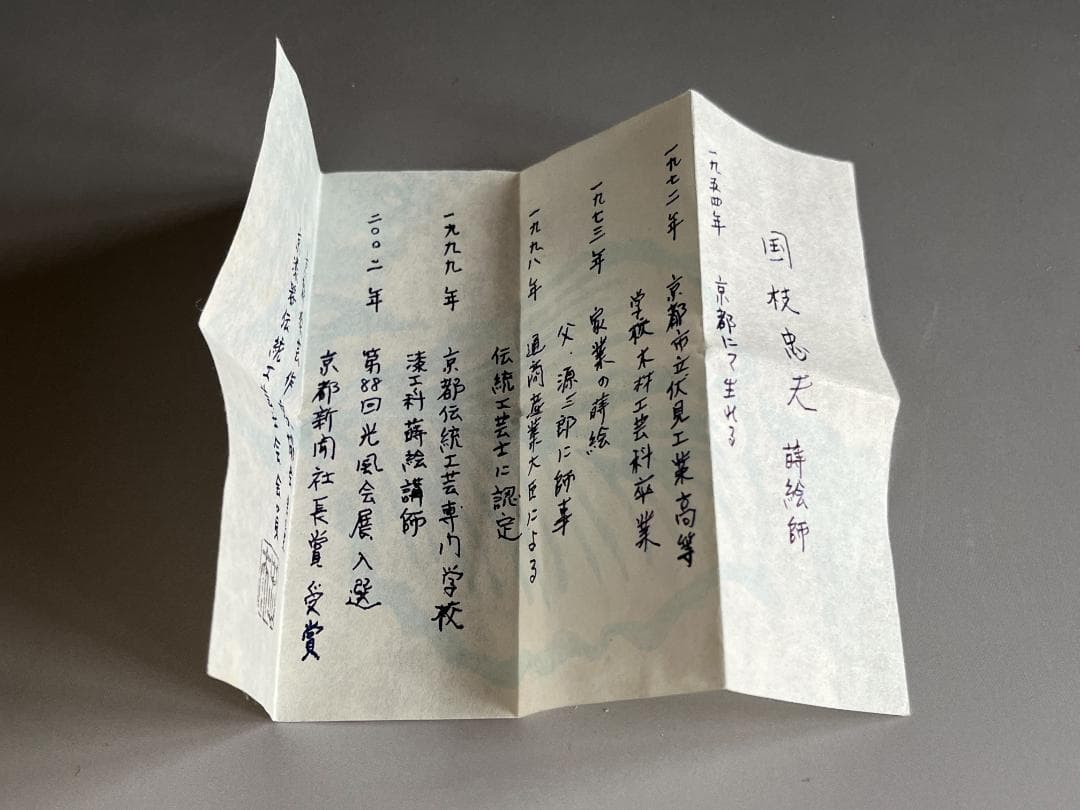 国枝忠夫 蒔絵師
一九五四年 京都にて生れる
一九七二年 京都市立伏見工業高等
学校木材工芸科卒業
一九七三年 家業の蒔絵
父・源三郎に師事
一九九八年 通商産業大臣による
伝統工芸士に認定
一九九九年 京都伝統工芸専門学校
漆工科蒔絵講師
二〇〇二年 第88回光風会展入選
京都新聞社長賞受賞
京漆器伝統工芸士会会員